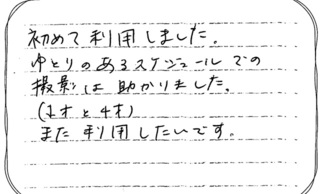 初めて利用しました。
ゆとりのあるスケジュールでの
撮影は助かりました。
(1才と4才)
また利用したいです。